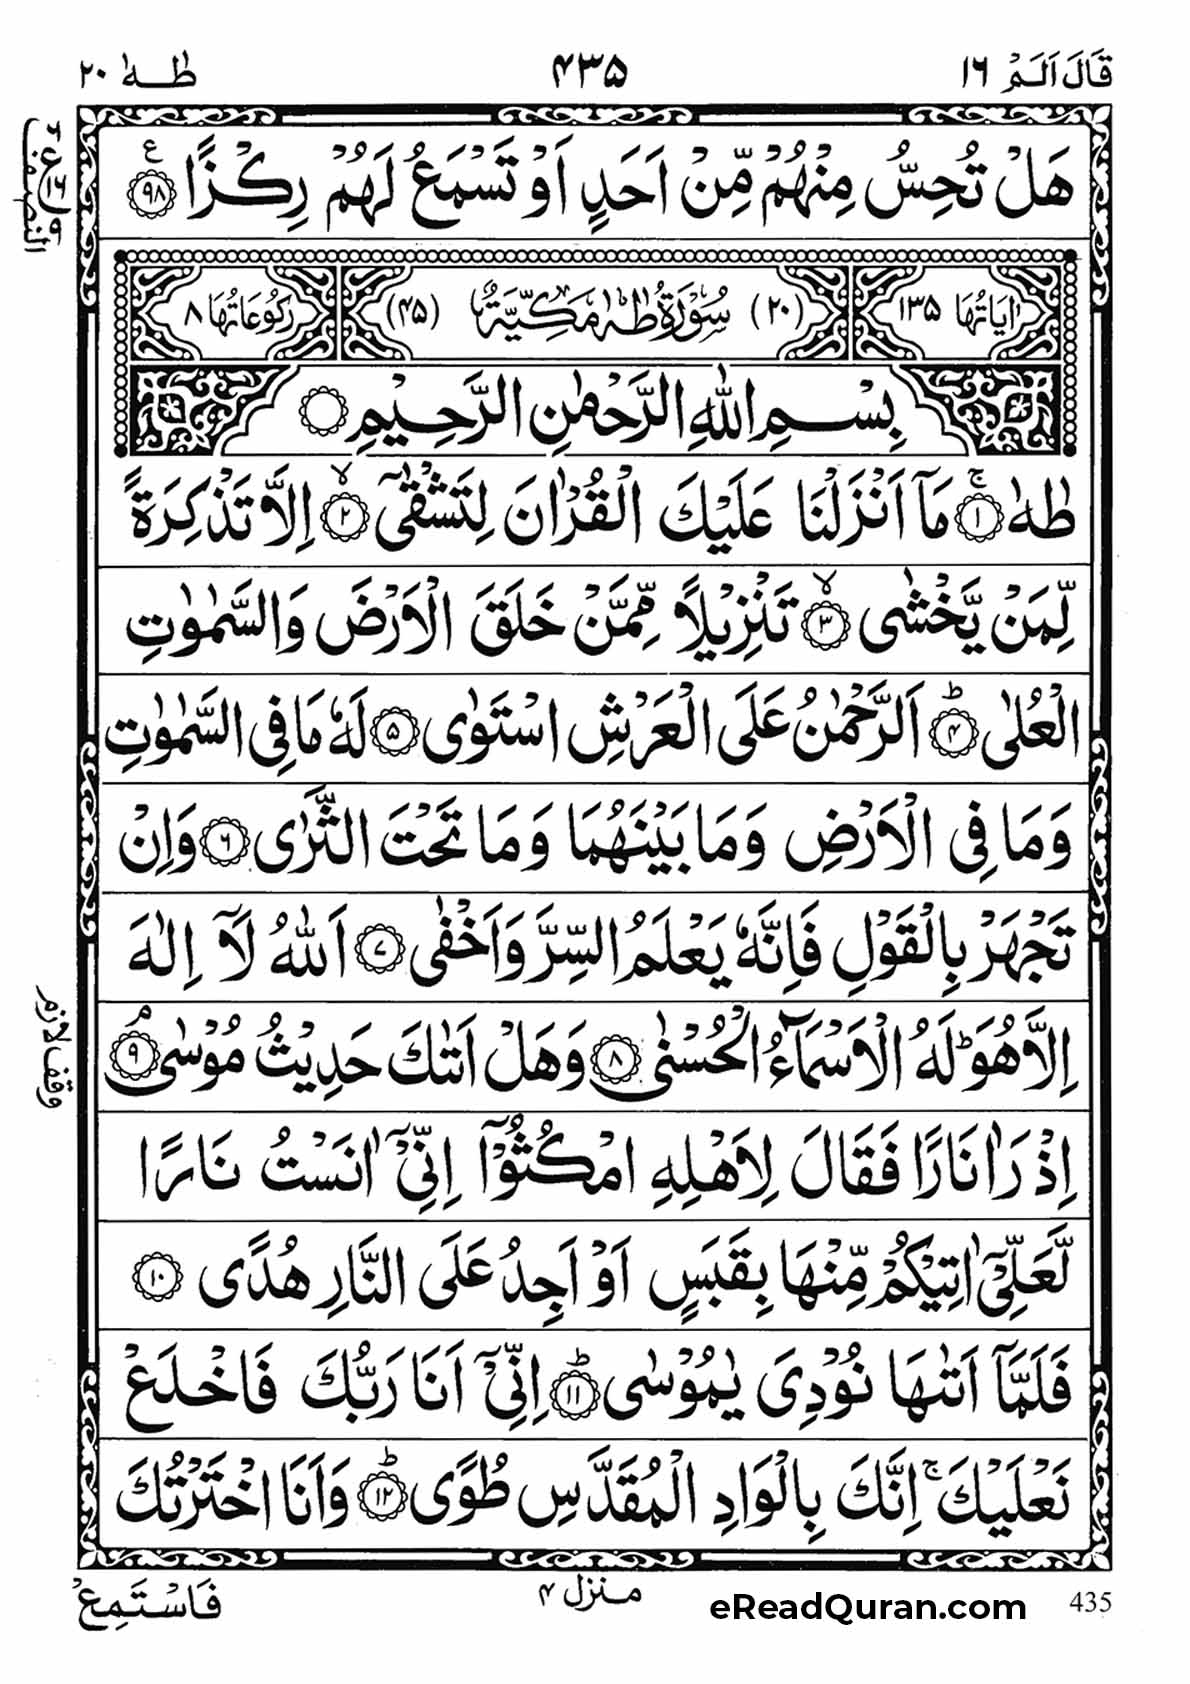 قَالَ اَلَمْ ١٦ ۴۳۵ طٰهٰ ٢٠
هَلْ تُحِسُّ مِنْهُمْ مِّنْ اَحَدٍ اَوْ تَسْمَعُ لَهُمْ رِكْزًا ﴿۹۸﴾ ع
اٰيَاتُهَا ١٣٥ (٢٠) سُوْرَةُ طٰهٰ مَكِّيَّةٌ (۴۵) رُكُوْعَاتُهَا ٨
بِسْمِ اللّٰهِ الرَّحْمٰنِ الرَّحِيْمِ
طٰهٰ ﴿۱﴾ۚ مَاۤ اَنْزَلْنَا عَلَيْكَ الْقُرْاٰنَ لِتَشْقٰۤى ﴿۲﴾ۙ اِلَّا تَذْكِرَةً
لِّمَنْ يَّخْشٰى ﴿۳﴾ۙ تَنْزِيْلًا مِّمَّنْ خَلَقَ الْاَرْضَ وَالسَّمٰوٰتِ
الْعُلٰى ﴿۴﴾ؕ اَلرَّحْمٰنُ عَلَى الْعَرْشِ اسْتَوٰى ﴿۵﴾ لَهٗ مَا فِى السَّمٰوٰتِ
وَمَا فِى الْاَرْضِ وَمَا بَيْنَهُمَا وَمَا تَحْتَ الثَّرٰى ﴿۶﴾ وَاِنْ
تَجْهَرْ بِالْقَوْلِ فَاِنَّهٗ يَعْلَمُ السِّرَّ وَاَخْفٰى ﴿۷﴾ اَللّٰهُ لَاۤ اِلٰهَ
اِلَّا هُوَؕ لَهُ الْاَسْمَآءُ الْحُسْنٰى ﴿۸﴾ وَهَلْ اَتٰىكَ حَدِيْثُ مُوْسٰى ﴿۹﴾ۘ
وقف لازم
اِذْ رَاٰ نَارًا فَقَالَ لِاَهْلِهِ امْكُثُوْۤا اِنِّيْۤ اٰنَسْتُ نَارًا
لَّعَلِّيْۤ اٰتِيْكُمْ مِّنْهَا بِقَبَسٍ اَوْ اَجِدُ عَلَى النَّارِ هُدًى ﴿۱۰﴾
فَلَمَّاۤ اَتٰىهَا نُوْدِىَ يٰمُوْسٰى ﴿۱۱﴾ؕ اِنِّيْۤ اَنَا رَبُّكَ فَاخْلَعْ
نَعْلَيْكَۚ اِنَّكَ بِالْوَادِ الْمُقَدَّسِ طُوًى ﴿۱۲﴾ؕ وَاَنَا اخْتَرْتُكَ
فَاسْتَمِعْ منزل ۴ eReadQuran.com 435